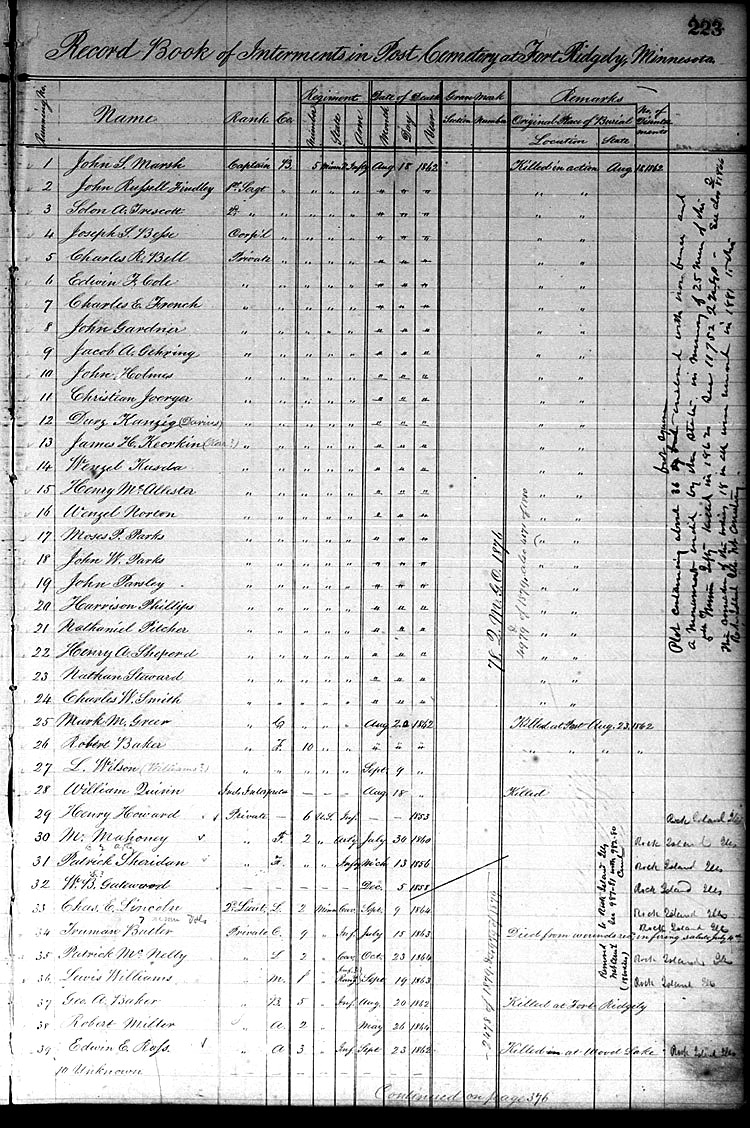 223
Record Book of Interments in Post Cemetery at Fort Ridgely, Minnesota.
Regiment Date of Death Grave Mark Remarks
Running No. Name Rank Co. Number State Arm Month Day Year Section Number Original Place of Burial No. of
Location State
1 John S. Marsh Captain B. 5 Minn. Infty Aug 18 1862 Killed in action Aug 18, 1862
2 John Russell Findley 1st Sergt " " " " " " " " "
3 Solon A. Trescott " " " " " " " " " "
4 Joseph S. Besse Corp'l " " " " " " " " "
5 Charles R. Bell Private " " " " " " " " "
6 Edwin F. Cole " " " " " " " " " "
7 Charles E. French " " " " " " " " " "
8 John Gardner " " " " " " " " " "
9 Jacob A. Gehring " " " " " " " " " "
10 John Holmes " " " " " " " " " "
11 Christian Joerger " " " " " " " " " "
12 Durs Kanzig (Darius) " " " " " " " " " "
13 James H. Keorkin " " " " " " " " " "
14 Wenzel Kusda " " " " " " " " " "
15 Henry McAllester " " " " " " " " " "
16 Wenzel Norton " " " " " " " " " "
17 Moses P. Parks " " " " " " " " " "
18 John W. Parks " " " " " " " " " "
19 John Parsley " " " " " " " " " "
20 Harrison Phillips " " " " " " " " " "
21 Nathaniel Pitcher " " " " " " " " " "
22 Henry A. Shepherd " " " " " " " " " "
23 Nathan Steward " " " " " " " " " "
24 Charles W. Smith " " " " " " " " " "
25 Mark M. Greer " G " " " Aug 22 1862 Killed at Post Aug. 23, 1862
26 Robert Baker " F. 10 " " " " " " " " "
27 L. Wilson (Williams?) " " " " " Sept. 9 "
28 William Quinn Ind. Interpreter — — — Aug 18 " Killed
29 Henry Howard Private — 6 U.S. Inf. — — 1853 Rock Island Ills
30 Mc Mahoney " F. 2 " Arty July 30 1860 Rock Island Ills
31 Patrick Sheridan " " " Infty Mch 13 1856 Rock Island Ills
32 W. B. Gatewood — — — — — Dec. 5 1858 Rock Island Ills
33 Chas. E. Lincoln 2d Lieut. L. 2 Minn Cav. Sept. 9 1864 Rock Island Ills
34 Truman Butler Private C. 9 " Inf. July 15 1863 Died from wounds rec. in firing salute July 4th Rock Island Ills
35 Patrick McNelly " L 2 " Cav. Oct. 23 1864 Rock Island Ills
36 Lewis Williams " M. 1 " Sept 19 1863 Rock Island Ills
37 Geo A. Baker " B. 5 " Inf. Aug. 20 1862 Killed at Fort Ridgely
38 Robert Miller " A. 2 " May 26 1864
39 Edwin E. Ross. " A 3 " Inf. Sept 23 1862 Killed at Wood Lake Rock Island Ills
10 Unknown — — — — — — — —
Continued on page 376
78 Q. M. G. O. 1876
Plot containing about 36 feet square enclosed with iron fence and
a monument erected by the State in memory of 25 men of the
5th Minn Infty killed in 1862